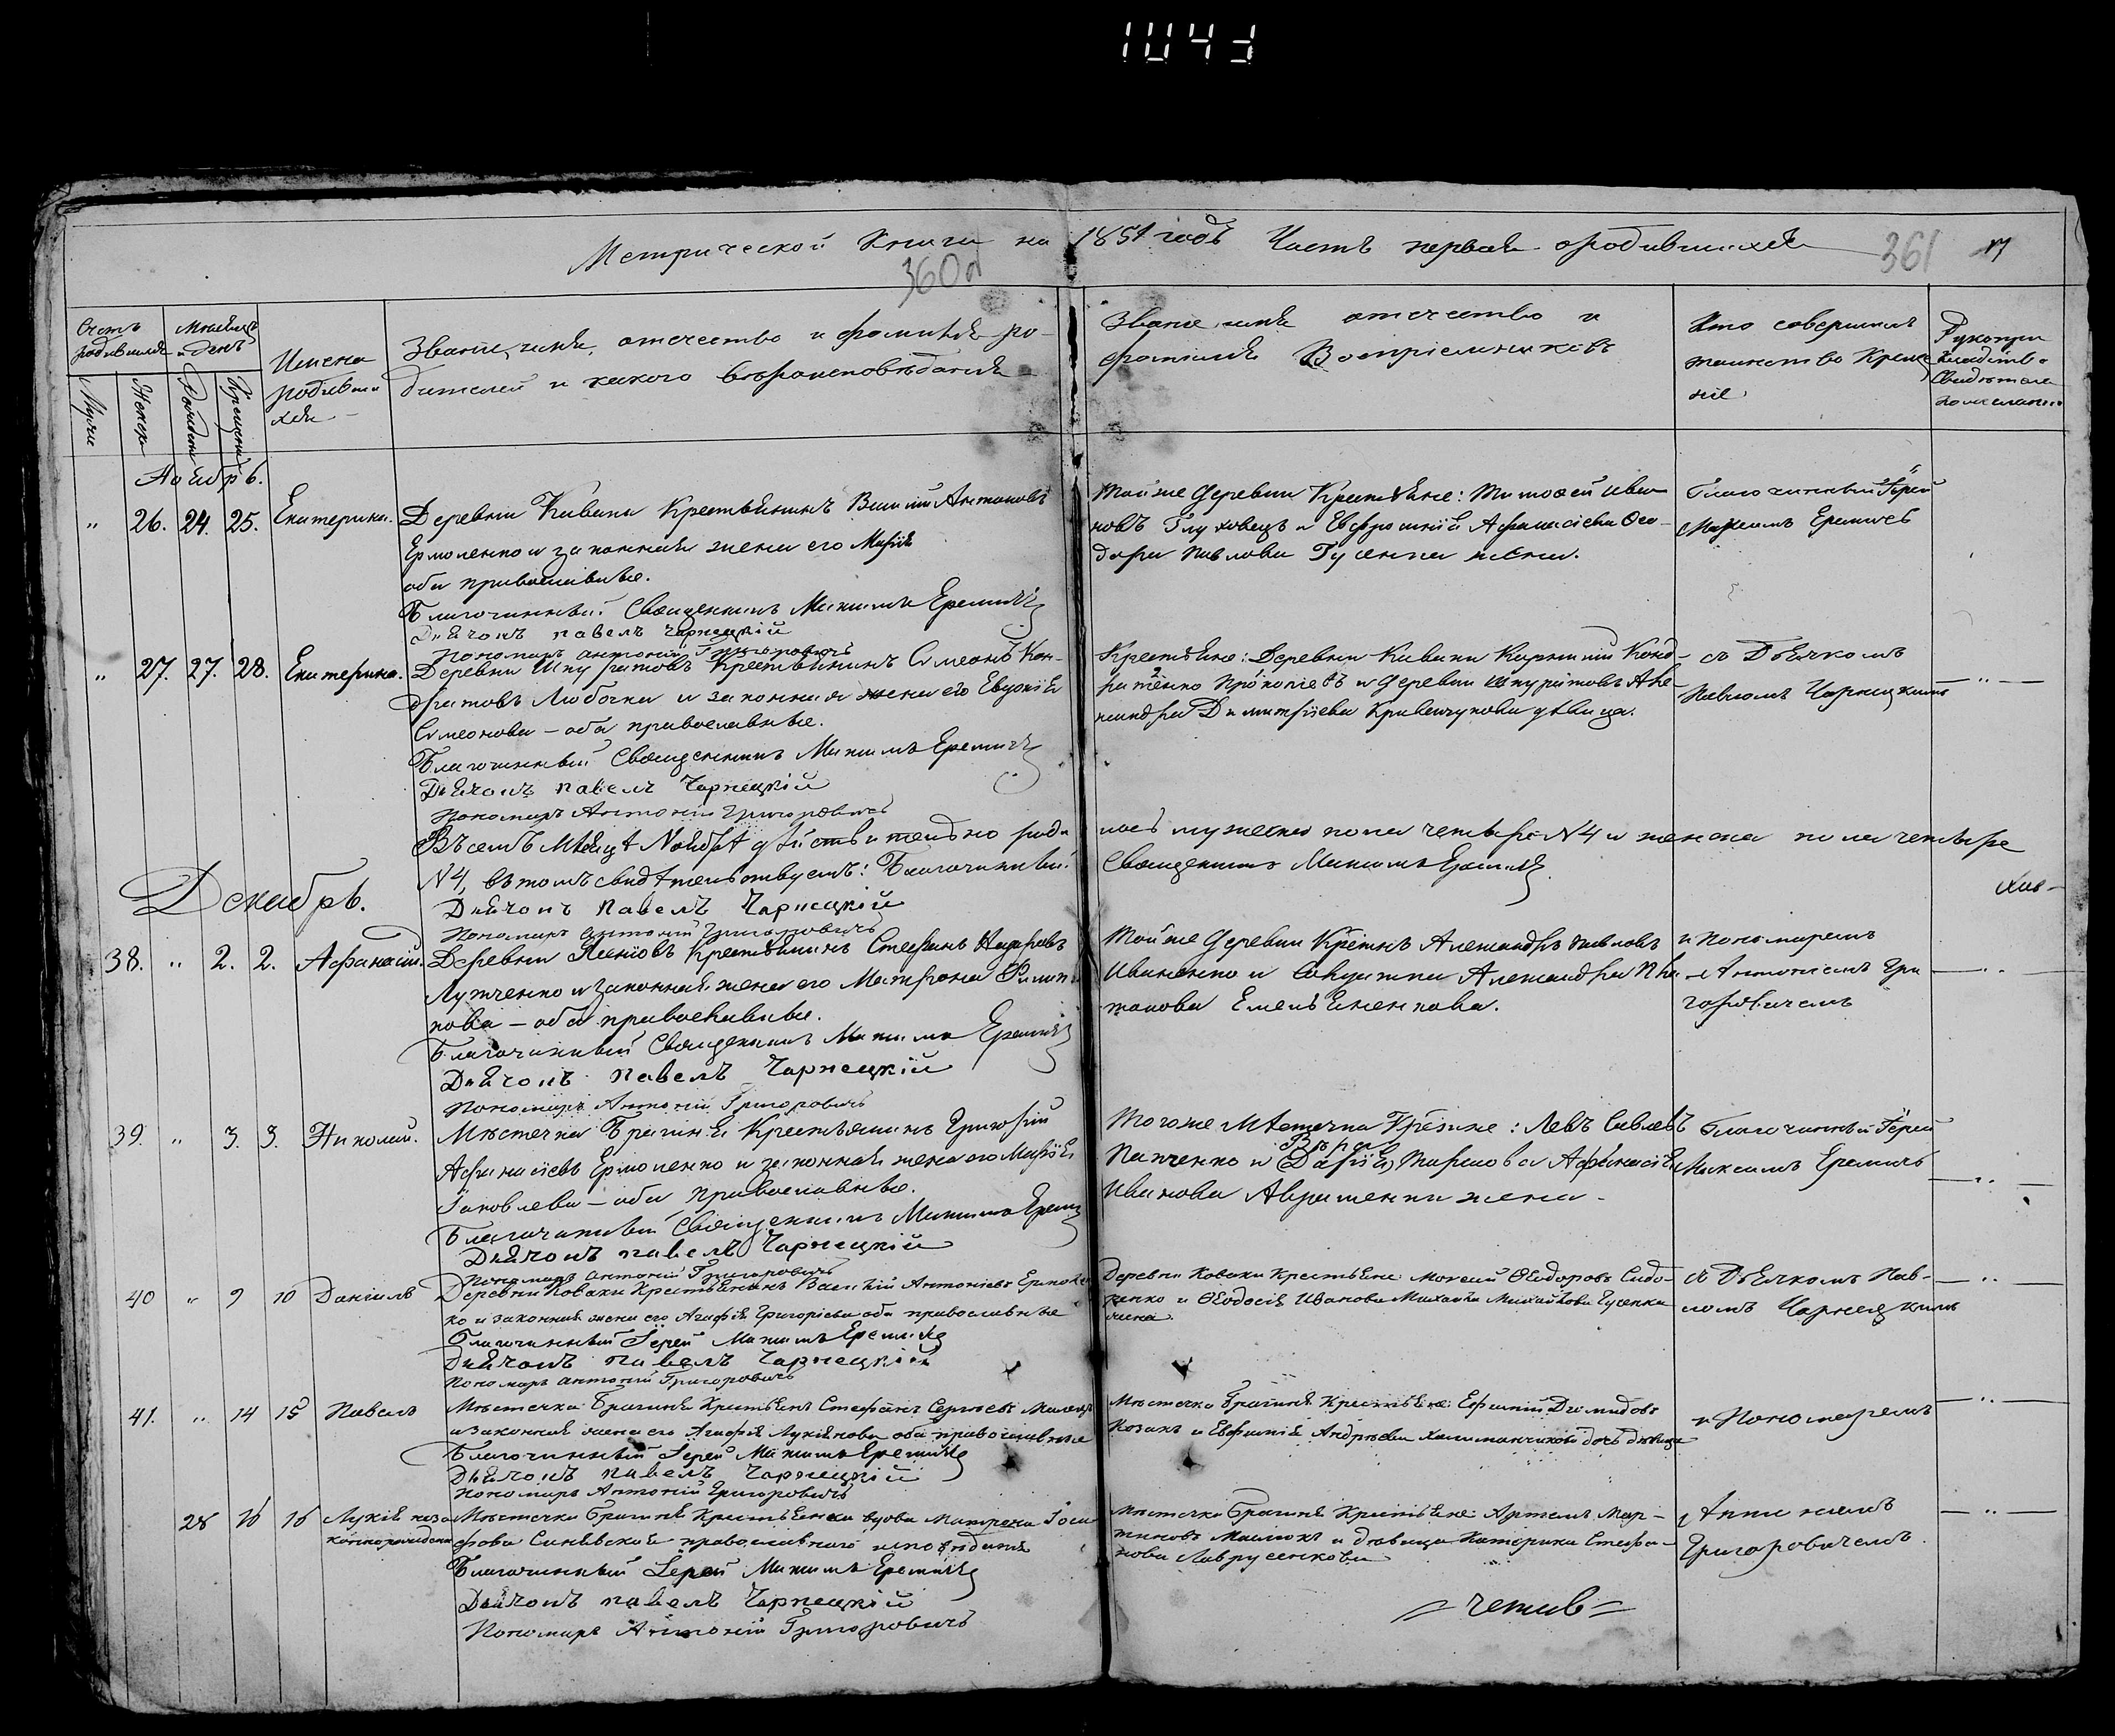 1043
Метрической Книги на 1851 годъ Часть первая о родившихся
360об
361
17
Счетъ родившихся
Мѣсяцъ и день
Мужес
Женск
Рожденія
Крещенія
Имена
родивши
хся
Званіе, имя, отчество и фамилія ро-
дителей и какого вѣроисповѣданія
Званіе, имя отчество и
фамилія Воспріемниковъ
Кто совершилъ
таинство Креще
ніе
Рукопри
кладство
Свидѣтелей
по желанію
Ноябрь.
" 26. 24. 25. Екатерина.
Деревни Кивани Крестьянинъ Антоновъ
Ермоленко и законная жена его Марія
оба православные.
Благочинный Священникъ Максимъ Еремичъ
Дьячокъ Павелъ Чарнецкій
Пономарь Антоній Григоровичъ
Тойже деревни Крестьяне: Тимофей Ива
новъ Глуховецъ и Евфросинія Афанасіева Ѳео-
дора Павлова Гусенка жена.
Благочинный Іерей
Максимъ Еремичъ
" 27. 27. 28. Екатерина.
Деревни Шкуратовъ Крестьянинъ Симеонъ Кон-
дратовъ Любочка и законная жена его Евдокія
Симеонова – оба православные.
Благочинный Священникъ Максимъ Еремичъ
Дьячокъ Павелъ Чарнецкій
Пономарь Антоній Григоровичъ
Крестьяне: Деревни Кивани Конд-
ратенко Прокопіевъ и деревни Шкуратовъ Але-
ксандра Димитріева Кривенчукова дѣвица.
съ Дьячкомъ
Павломъ Чарнецкимъ
Въ семъ Мѣсяцѣ Ноябрѣ дѣйствительно роди
лось мужеска пола четыре N4 и женска пола четыре
N4, въ томъ свидѣтельствуемъ: Благочинный
Священникъ Максимъ Еремичъ
Дьячокъ Павелъ Чарнецкій
Пономарь Антоній Григоровичъ
Декабрь.
38. " 2. 2. Афанасій.
Деревни Крестьянинъ Стефанъ
Лутченко и законная жена его Матрона Филип
пова – оба православные.
Благочинный Священникъ Максимъ Еремичъ
Дьячокъ Павелъ Чарнецкій
Пономарь Антоній Григоровичъ
Тойже деревни Крестнъ Александръ Павловъ
Иваненко и Солдатка Александра Пла
тонова Емельяненкова.
и Пономаремъ
Антоніемъ Гри
горовичемъ
39. " 3. 3. Николай.
Мѣстечка Брагиня Крестьянинъ Григорій
Афанасіевъ Ермоленко и законная жена его Марія
Іаковлева – оба православные.
Благочинный Священникъ Максимъ Еремичъ
Дьячокъ Павелъ Чарнецкій
Пономарь Антоній Григоровичъ
Тогоже Мѣстечка Крестяне: Левъ Савлевъ
Папченко и (Дарія) Вѣра Тарасова Афанасія
Иванова Авраменка жена –
Благочинный Іерей
Максимъ Еремичъ
40 " 9 10 Даніилъ
Деревни Коваки Крестьянинъ Василій Антоніевъ Ермолен
ко и законная жена его Агафія Григоріева оба православные
Благочинный Іерей Максимъ Еремичъ
Дьячокъ Павелъ Чарнецкій
Пономарь Антоній Григоровичъ
Деревни Коваки Крестьяне Моисей Ѳеодоровъ Сидо-
ренко и Ѳеодосія Иванова Михаила Михайлова Гусенка
жена
съ Дьячкомъ Пав-
ломъ Чарнецкимъ
41. " 14 15 Павелъ
Мѣстечка Брагиня Крестьянъ Стефанъ Сергѣевъ
и законная жена его Агафія Лукіянова оба православные
Благочинный Іерей Максимъ Еремичъ
Дьячокъ Павелъ Чарнецкій
Пономарь Антоній Григоровичъ
Мѣстечка Брагиня Крестьяне Ефимій Демидовъ
Козакъ и Евфимія Андреева дочь дѣвица
и Пономаремъ
28 16 16 Лукія незаконнорожден
Мѣстечка Брагиня Крестьянка вдова Матрена Іоси
фова Синявская православнаго исповѣданія
Благочинный Іерей Максимъ Еремичъ
Дьячокъ Павелъ Чарнецкій
Пономарь Антоній Григоровичъ
Мѣстечка Брагиня Крестьяне Артемъ Мар-
тиновъ и дѣвица Катерина Стефа-
нова Лаврусенкова
Антоніемъ
Григоровичемъ